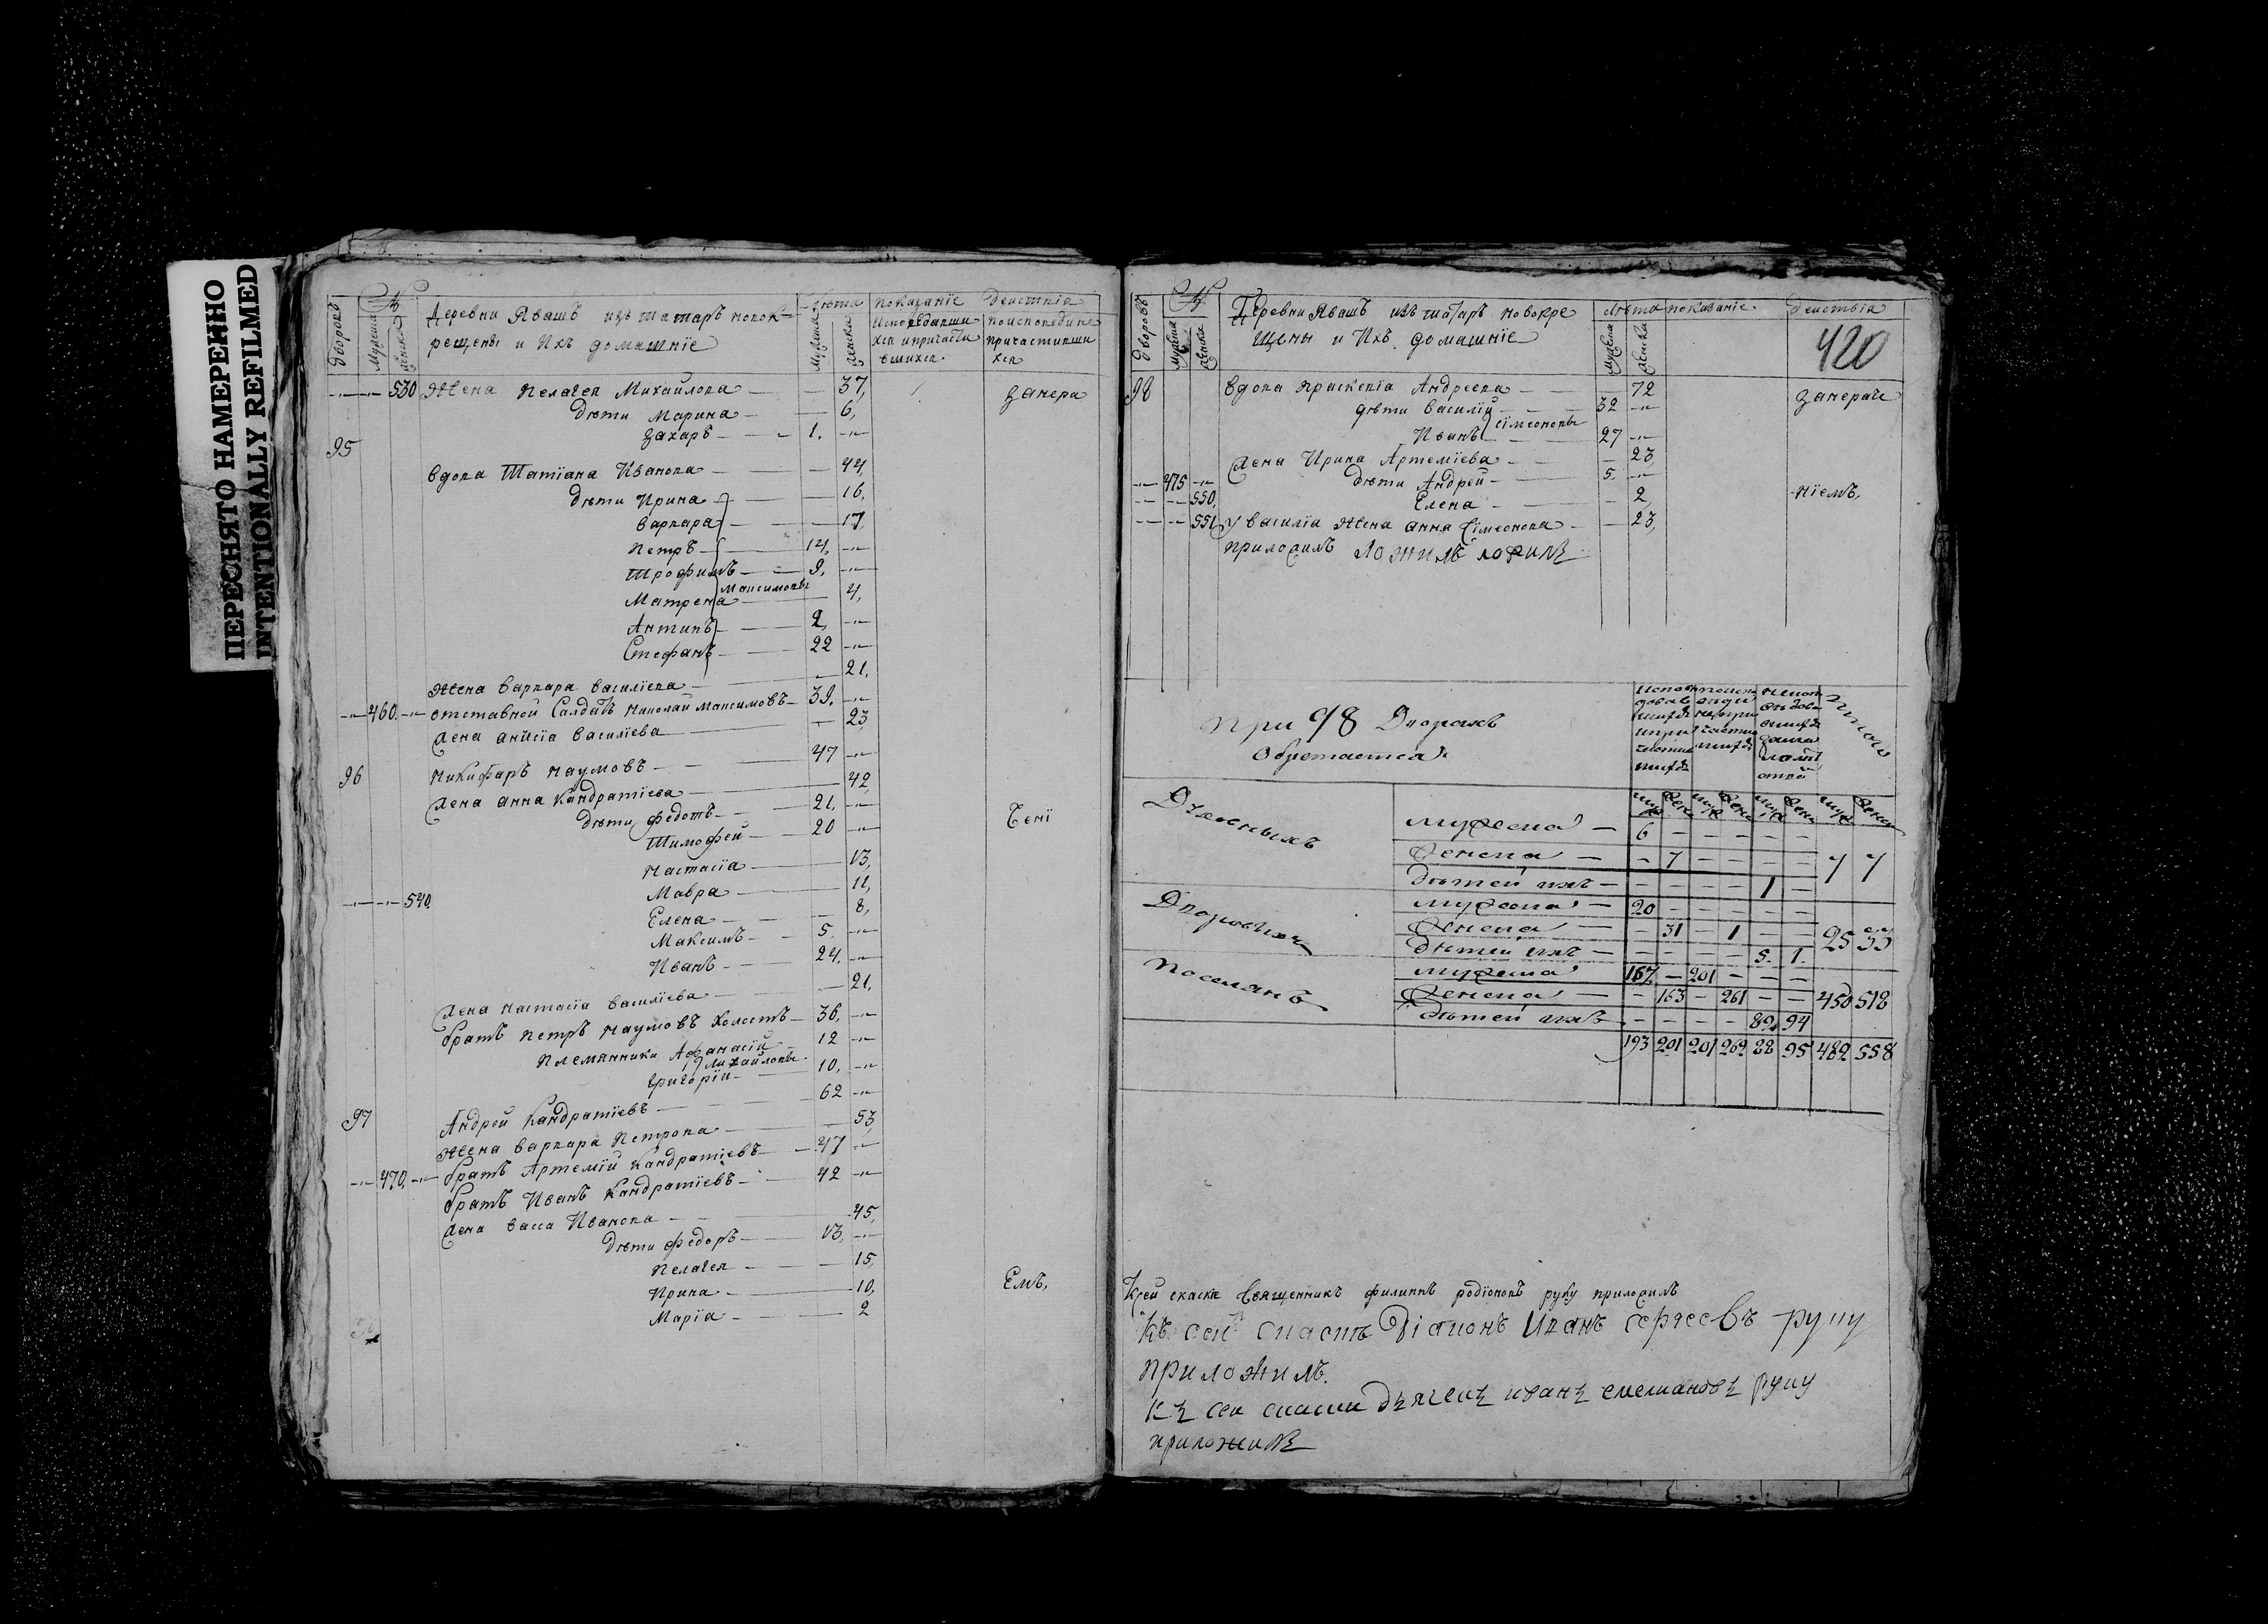 ПЕРЕСНЯТО НАМЕРЕННО
INTENTIONALLY REFILMED
дворовъ
№
мужеска
женска
Деревни Явашъ изъ татаръ новок-
рещены и Ихъ домашнïе
Лѣта
мужеска
женска
показанïе
действïя
Исповедавши
хся и причасти
вшихся
поисповедине
причастивши
хся
530 Жена Пелагея Михайлова 37,
занера
дѣти Марина 6,
Захаръ 1.
95
вдова Татïана Иванова 44,
дѣти Ирина 16,
варвара 17
Петръ 14,
Трофимъ 9,
Максимовы
Матрена 4,
Антипъ 2,
Стефанъ 22
Жена варвара василïева 21,
460. отставной Салдатъ николай максимовъ 39.
жена анисïа василïева 23
96 никифаръ наумовъ 47
жена анна Кандратïева 42,
дѣти федотъ 21,
ченï
Тимофей 20
настасïа 13,
540. Мавра 11,
Елена 8,
Максимъ 5.
Иванъ 24.
жена настасïа василïева 21,
братъ петръ наумовъ холостъ 36,
племянники Афанасïй 12
михайловы
григорïи 10,
97 Андрей Кандратïевъ 62
Жена варвара Петрова 53,
470. братъ Артемïй Кандратïевъ 47
братъ Иванъ Кандратïевъ 42
жена васса Иванова 45,
дѣти федоръ 13,
пелагея 15,
Ирина 10,
емъ,
Марïа 2
дворовъ
№
мужеска
женска
Деревни Явашъ изъ татаръ новокре
щены и Ихъ домашнïе
лѣта
мужеска
женска
показанïе
действïя
420
98 вдова праскевïа Андреева 72
занераче
дѣти василïй 32
сïмеоновы
Иванъ 27
жена Ирина Артемïева 23,
475 дѣти Андрей 5.
550, Елена 2,
нïемъ.
551, у василïа жена анна сïмеонова 23,
приложилъ ложилъ ложилъ
при 98 Дворахъ
обретается
Итого
муж жен муж жен муж жен муж жен
Духовныхъ
мужеска 6
женска 7
7 7
дѣтей ихъ 1
Дворовыхъ
мужеска 20
женска 31 1
25 33
дѣтей ихъ 5. 1.
поселянъ
мужеска 167 201
женска 163 261
450 518
дѣтей ихъ 82 94
193 201 201 262 88 95 482 558
Ксей скаске Священникъ филиппъ родïоновъ руку приложилъ
Къ сей скаскѣ Дïаконъ Иванъ сергеевъ руку
приложилъ.
Къ сеи скаски дьячекъ иванъ степановъ руку
приложилъ